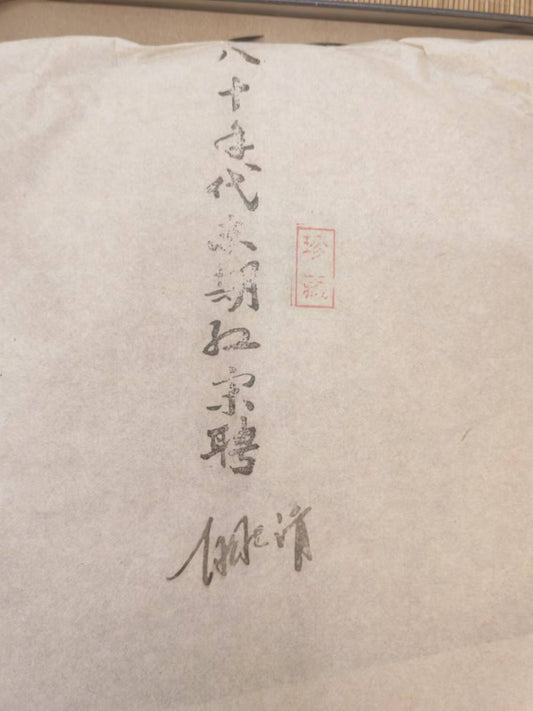 八十年代末期红宋聘
珍藏